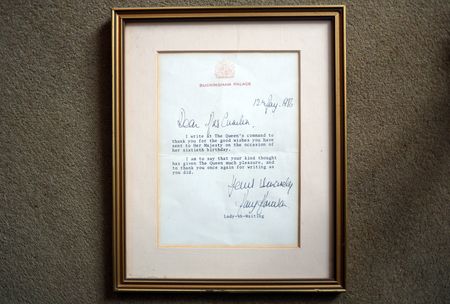 BUCKINGHAM PALACE
1986
Dear Mrs
I write at The Queen's command to
thank you for the good wishes you have
sent to Her Majesty on the occasion of
her sixtieth birthday.
I am to say that your kind thought
has given The Queen much pleasure, and
to thank you once again for writing as
you did.
Yours sincerely
Lady-in-Waiting